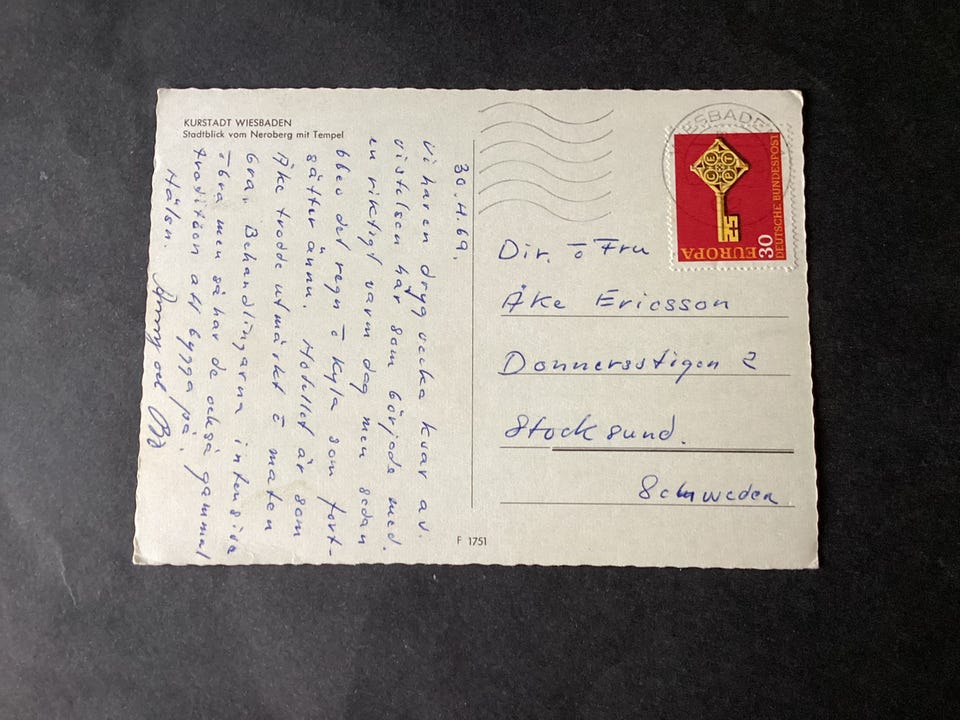 KURSTADT WIESBADEN
Stadtblick vom Neroberg mit Tempel
30.4.69.
Vi har en drygg vecka kvar av
vistelsen här som började med
en riktigt varm dag men sedan
blev det regn o kyla som fort-
sätter ännu. Hotellet är som
Åke trodde utmärkt o maten
bra. Behandlingarna intensiva
o bra men så har de också gammal
tradition att bygga på.
Hälsn.
och Bo
WIESBADEN
EUROPA
30
DEUTSCHE BUNDESPOST
CEPT
Dir. o Fru
Åke Ericsson
Donnersstigen 2
Stocksund.
Schweden
F 1751